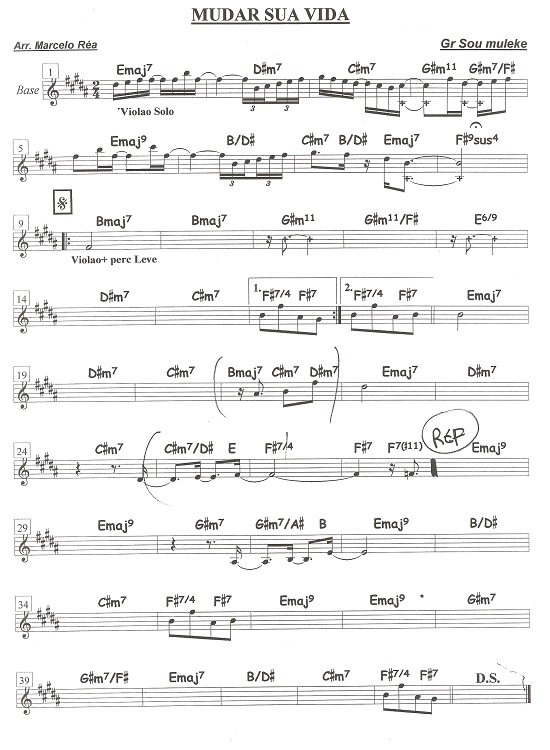 MUDAR SUA VIDA
Arr. Marcelo Réa
Gr Sou muleke
1 Emaj7 D#m7 C#m7 G#m11 G#m7/F#
Base 2 4 3 3
´Violao Solo
5 Emaj9 B/D# C#m7 B/D# Emaj7 F#9sus4
3 3
9 Bmaj7 Bmaj7 G#m11 G#m11/F# E6/9
Violao+ perc Leve
14 D#m7 C#m7 1. F#7/4 F#7 2. F#7/4 F#7 Emaj7
19 D#m7 C#m7 Bmaj7 C#m7 D#m7 Emaj7 D#m7
24 C#m7 C#m7/D# E F#7/4 F#7 F7(#11) REP Emaj9
29 Emaj9 G#m7 G#m7/A# B Emaj9 B/D#
34 C#m7 F#7/4 F#7 Emaj9 Emaj9 G#m7
39 G#m7/F# Emaj7 B/D# C#m7 F#7/4 F#7 D.S.